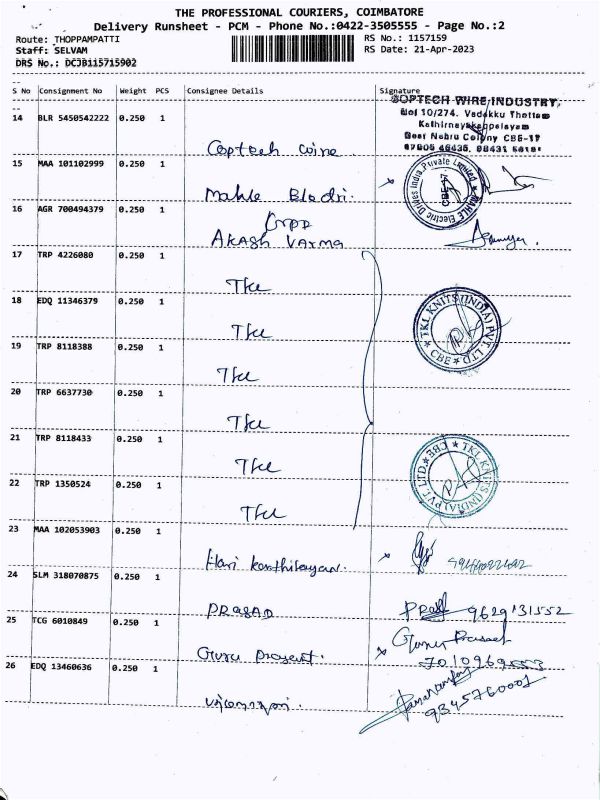 THE PROFESSIONAL COURIERS, COIMBATORE
Delivery Runsheet - PCM - Phone No.:0422-3505555 - Page No.:2
Route: THOPPAMPATTI
RS No.: 1157159
Staff: SELVAM
RS Date: 21-Apr-2023
DRS No.: DCJB115715902
S No Consignment No Weight PCS Consignee Details Signature
14 BLR 5450542222 0.250 1
COPTECH WIRE INDUSTRY,
No! 10/274. Vadakku Thottam
Kathirnayakkanpalayam
Near Nehru Colony CBE-17
Coptech wire
15 MAA 101102999 0.250 1
Mahle Electric Drives India Private Limited
CBE-17
Mahle
16 AGR 700494379 0.250 1
AKASH VARMA
17 TRP 4226080 0.250 1
TKL
18 EDQ 11346379 0.250 1
TKL KNITS (INDIA) PVT. LTD.
CBE
TKL
19 TRP 8118388 0.250 1
TKL
20 TRP 6637730 0.250 1
TKL
21 TRP 8118433 0.250 1
TKL KNITS (INDIA) PVT. LTD.
CBE
TKL
22 TRP 1350524 0.250 1
TKL
23 MAA 102053903 0.250 1
Hari
24 SLM 318070875 0.250 1
PRASAD 9629131552
25 TCG 6010849 0.250 1
Guru Prasath
Guru
26 EDQ 13460636 0.250 1
9345760001